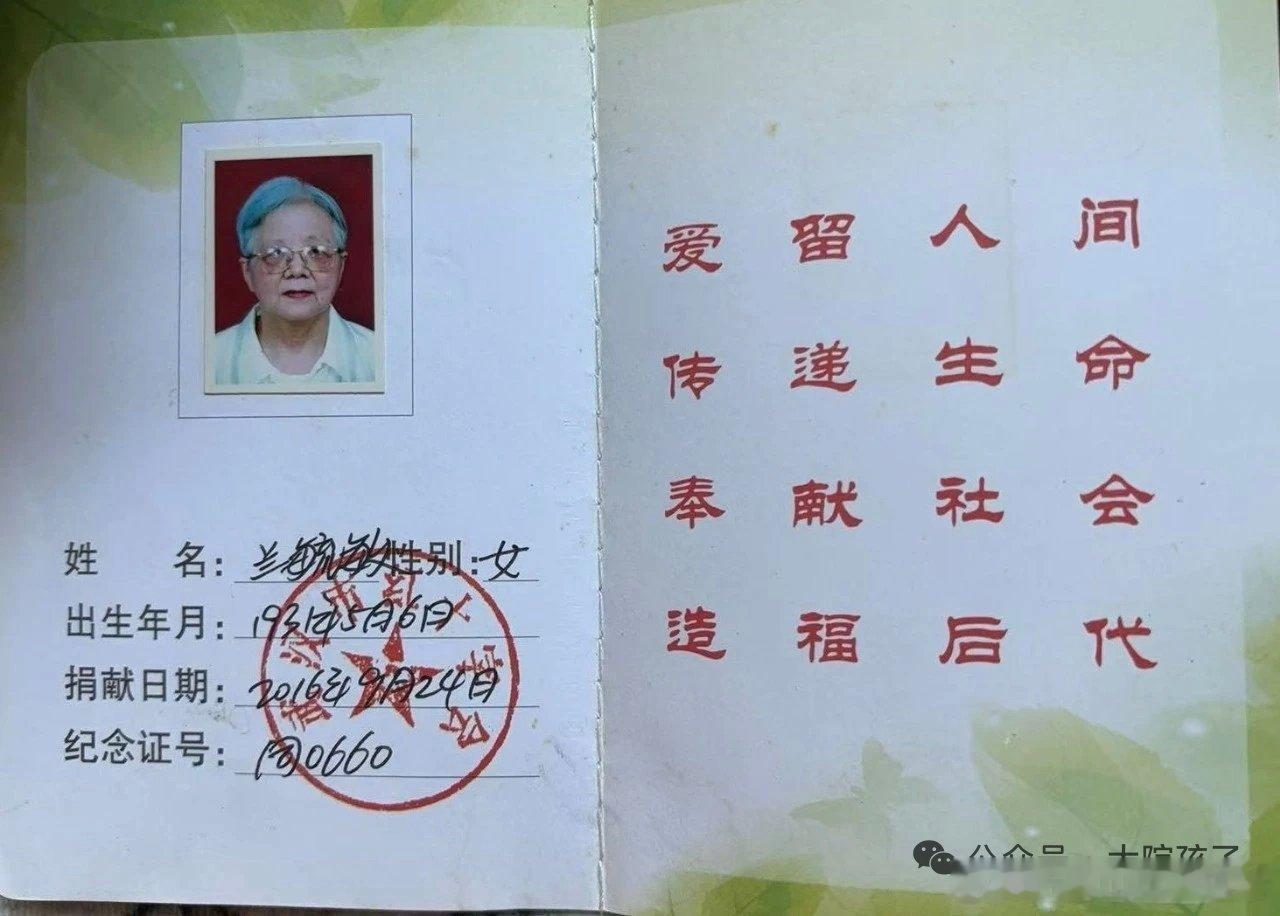 姓 名：兰毓敏 性别：女
出生年月：1931年5月6日
捐献日期：2016年9月24日
纪念证号：(同)0660
爱留人间
传递生命
奉献社会
造福后代
武汉市红十字会
公众号 大院孩子